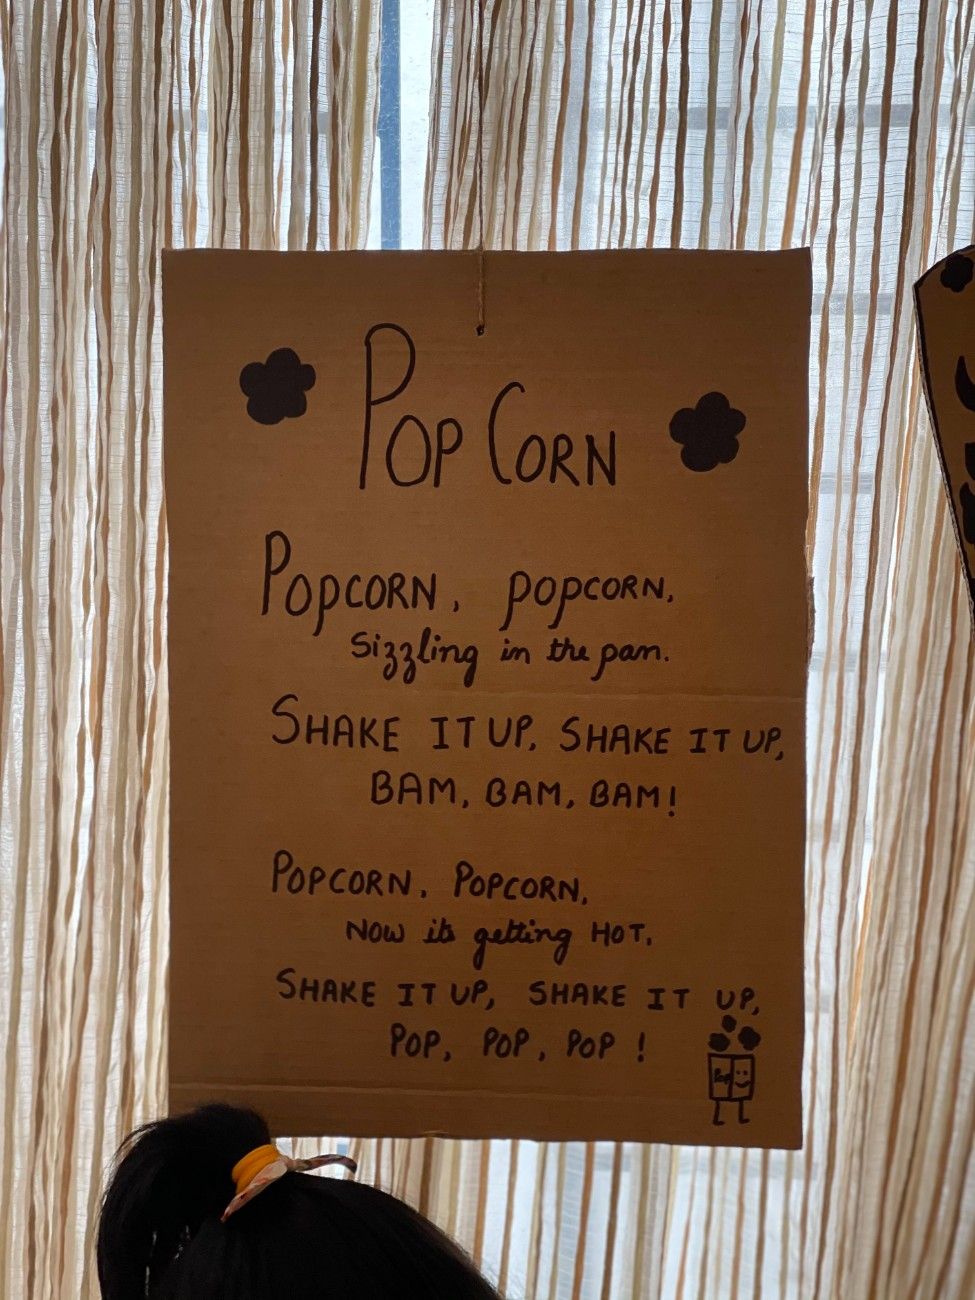 POP CORN
POPCORN, POPCORN,
Sizzling in the pan.
SHAKE IT UP, SHAKE IT UP,
BAM, BAM, BAM!
POPCORN, POPCORN,
NOW its getting HOT,
SHAKE IT UP, SHAKE IT UP,
POP, POP, POP !
Pop